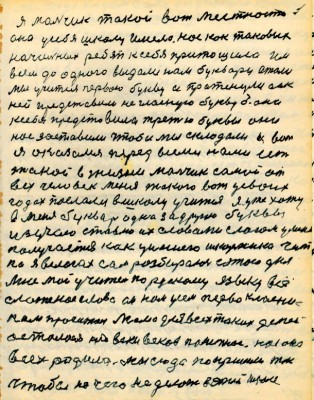 я мальчик такой вот местности
она у себя школу имела, нас как таковых
начальных ребят к себе притощила им
всем до одного выдали нам букварь стали
мы учится первою букву а протянули как
ней представили не гласную букву б. она
к себе представила третью букву они
нас заставили чтобы мы складали и вот
я оказался перед всеми нами есть
такой в жизни мальчик самой от
всех человек меня такого вот в своих
годах послали в школу учится я уже хожу
в меня буквар одна за другою буквы
изучаю ставлю их словами слогом
получается как умного школьника чита
по я в слогах сам розбираюсь с этого дня
мне мой учитель по русскому языку всё
сложные слова он нам учил перво классни
кам прочитал молодей всех таких детей
осталось на веки веков понятное. нас она
всех родила. мы сюда пошли так
чтобы ничего не делать в этой